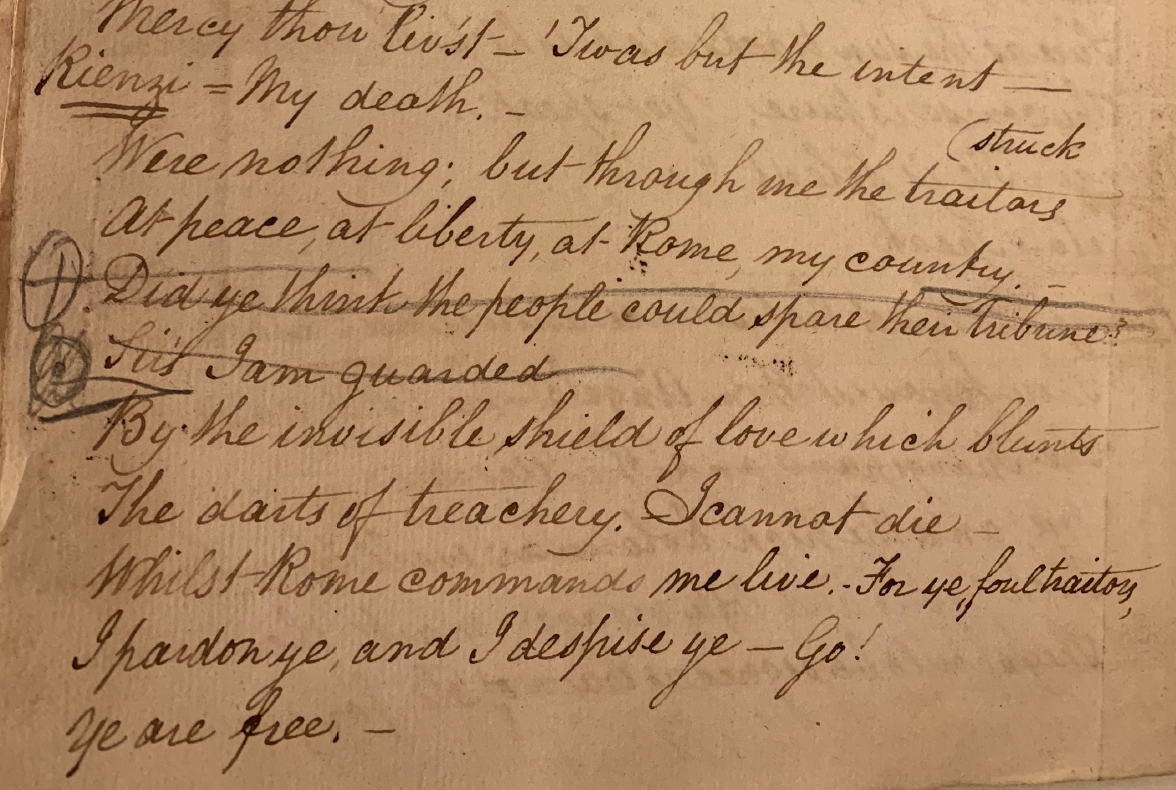 Mercy thou liv'st – 'Twas but the intent —
Rienzi = My death. –
(struck
Were nothing; but through me the traitors
At peace, at liberty, at Rome, my country. –
Did ye think the people could spare their tribune?
I am guarded
By the invisible shield of love which blunts
The darts of treachery. I cannot die –
Whilst Rome commands me live. – For ye, foul traitors,
I pardon ye, and I despise ye – Go!
Ye are free. –